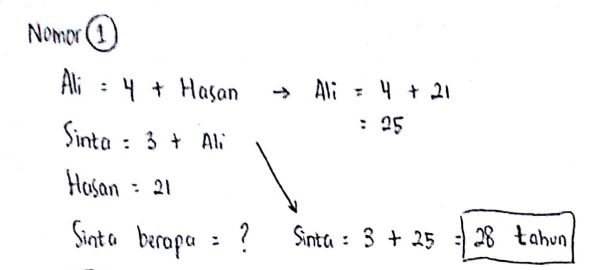 Nomor 1
Ali = 4 + Hasan → Ali = 4 + 21
= 25
Sinta = 3 + Ali
Hasan = 21
Sinta berapa = ? Sinta = 3 + 25 = 28 tahun